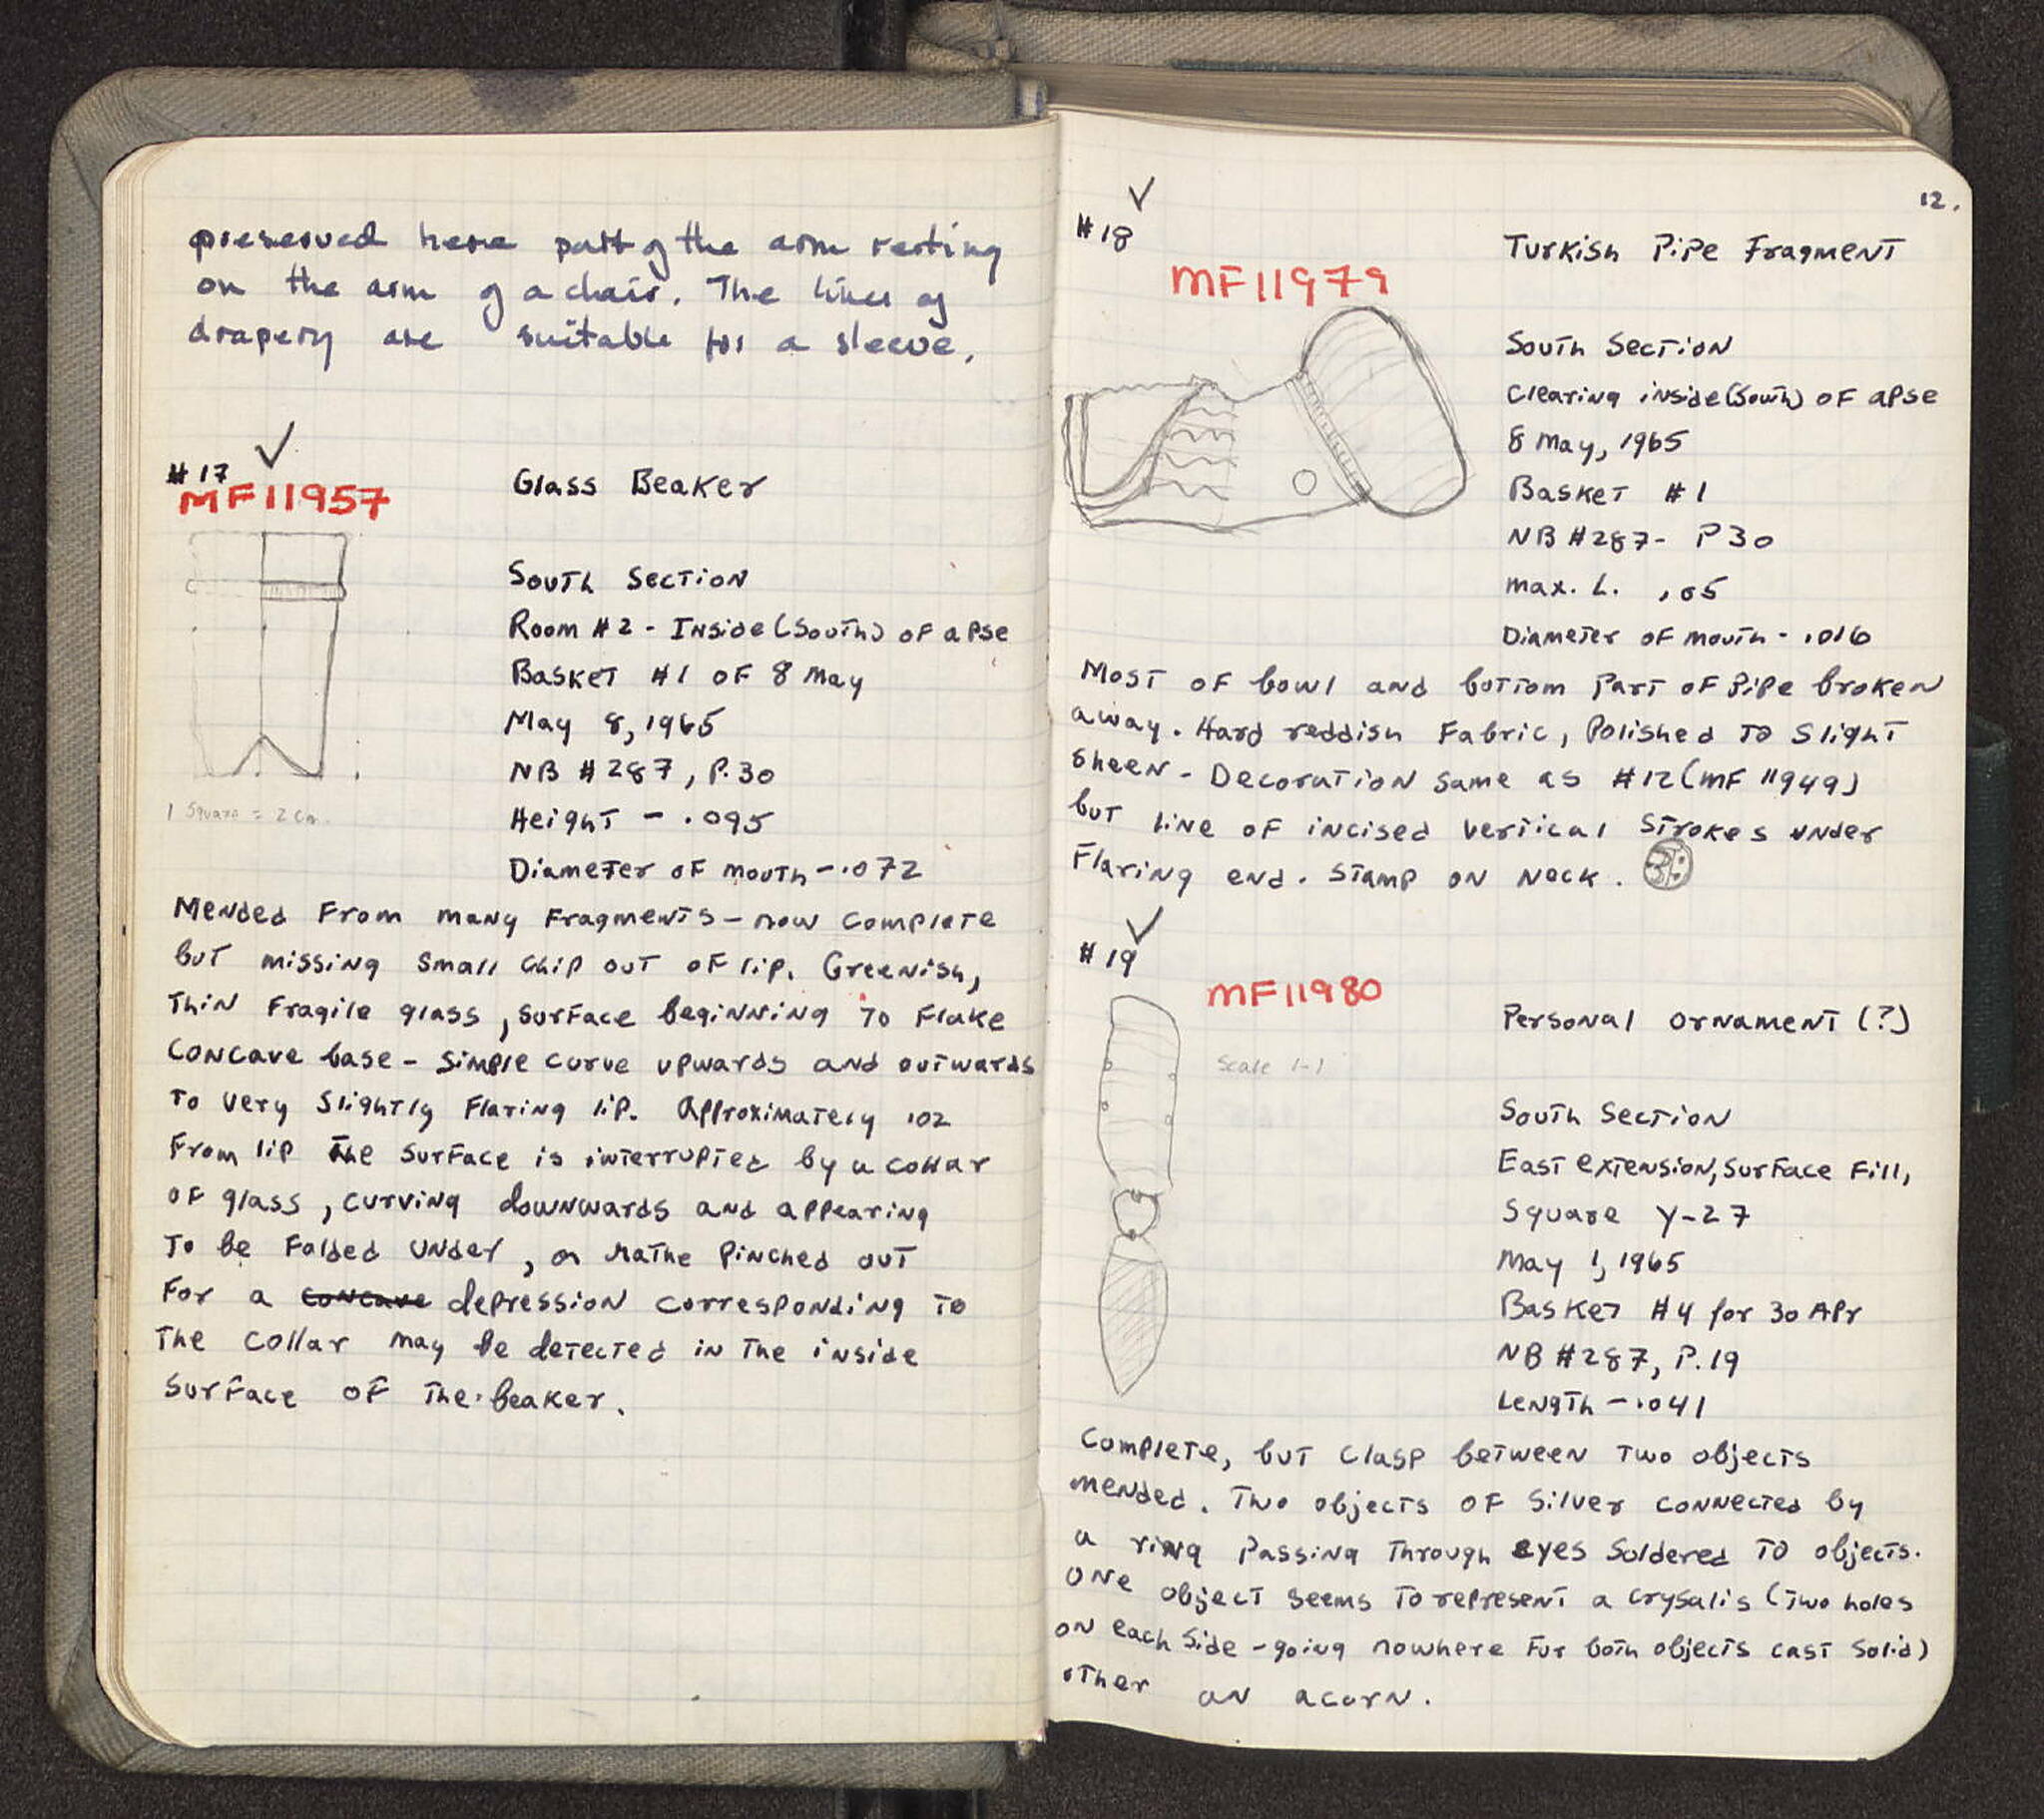 preserved here part of the arm resting
on the arm of a chair. The lines of
drapery are suitable for a sleeve.
#17
MF11957
Glass Beaker
South Section
Room #2 - Inside (South) of apse
Basket #1 of 8 May
May 8, 1965
NB #287, P.30
Height - .095
Diameter of mouth - .072
1 Square = 2 cm.
Mended from many fragments - now complete
but missing small chip out of lip. Greenish,
thin fragile glass, surface beginning to flake
Concave base - simple curve upwards and outwards
to very slightly flaring lip. Approximately .02
from lip the surface is interrupted by a collar
of glass, curving downwards and appearing
to be folded under, or rathe pinched out
for a concave depression corresponding to
the collar may be detected in the inside
surface of the beaker.
12.
#18
MF11979
Turkish Pipe Fragment
South Section
Clearing inside (South) of apse
8 May, 1965
Basket #1
NB #287 - P30
max. L. .05
Diameter of mouth - .016
Most of bowl and bottom part of pipe broken
away. Hard reddish fabric, polished to slight
sheen - Decoration same as #12 (MF 11949)
but line of incised vertical strokes under
flaring end. Stamp on neck.
#19
MF11980
Scale 1-1
Personal ornament (?)
South Section
East extension, surface fill,
Square Y-27
May 1, 1965
Basket #4 for 30 Apr
NB #287, P.19
Length - .041
Complete, but clasp between two objects
mended. Two objects of silver connected by
a ring passing through eyes soldered to objects.
One object seems to represent a crysalis (two holes
on each side - going nowhere for both objects cast solid)
other an acorn.